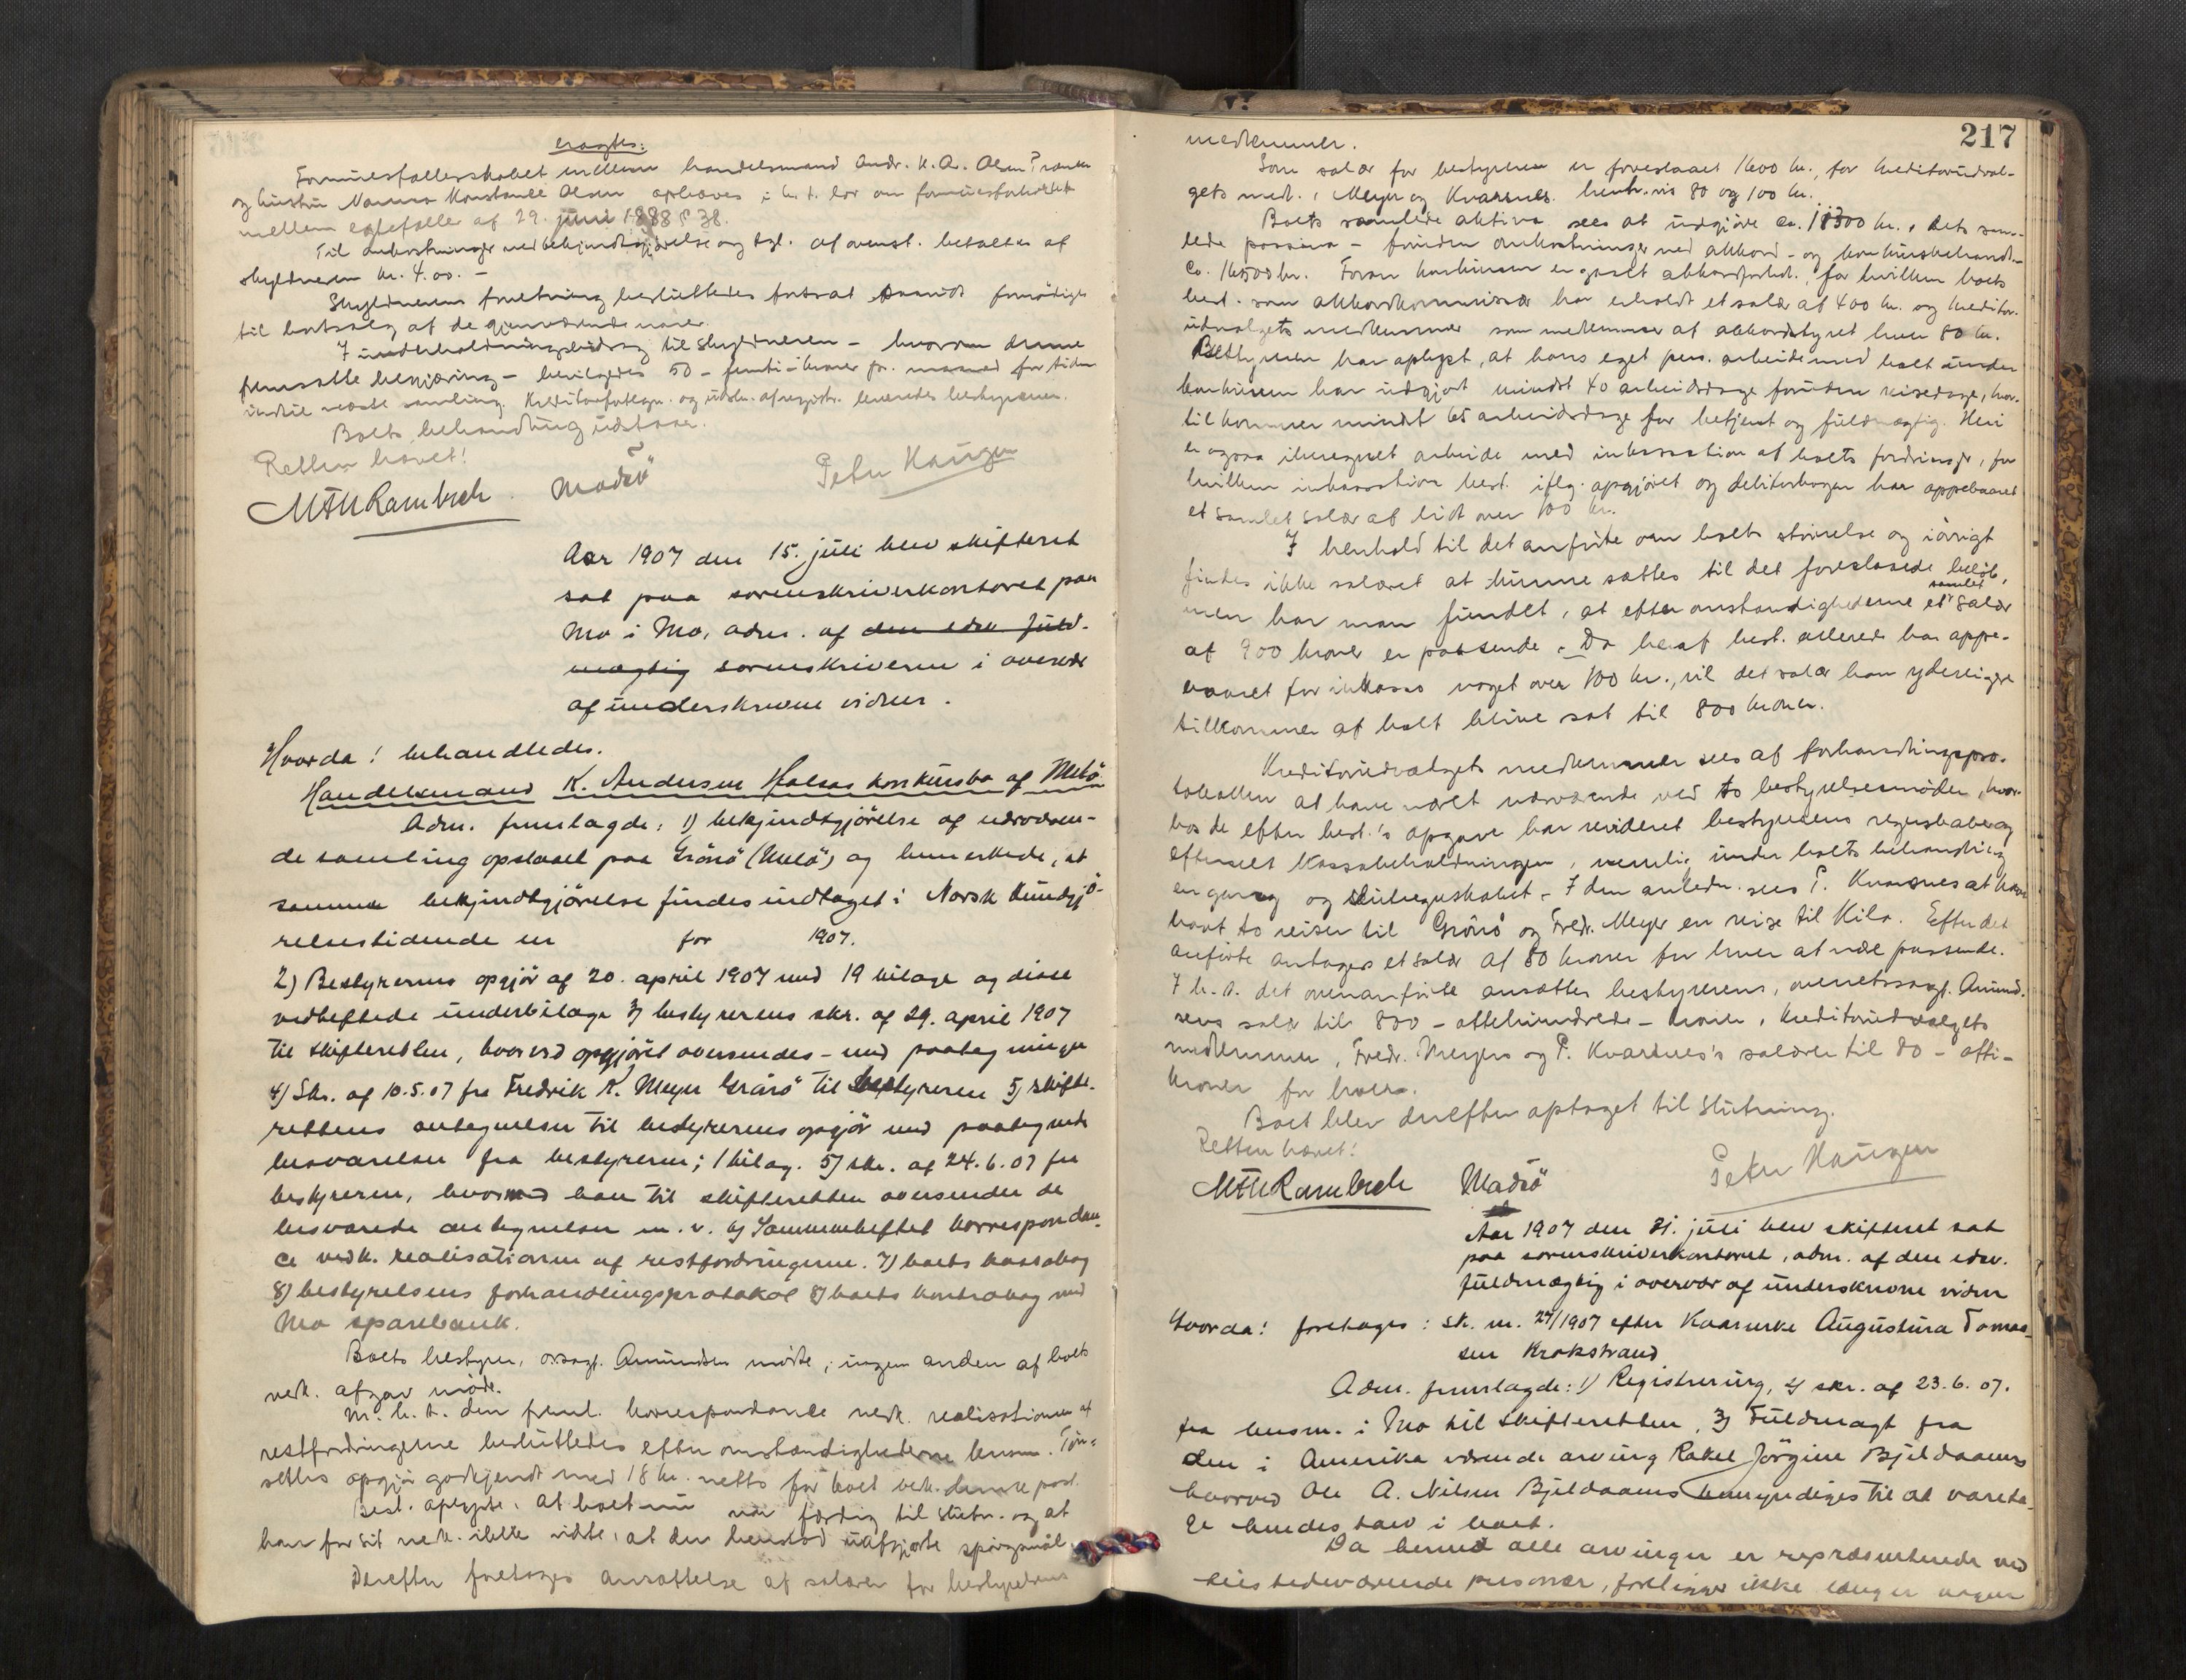 eragtes:
Formuesfællesskabet mellem handelsmand Andr. K. A. Olsen Ranen
og hustru Nanna Konstanse Olsen ophæves i h. t. lov om formuesforholdet
mellem egtefæller af 29. juni 1888 § 38.
Til omkostninger ved bekjendtgjørelse og tgl. af ovenst. betaltes af
skyldneren kr. 4.00. –
Skyldnerens forretning besluttedes fortsat saavidt fornödiges
til bortsalg af de gjenværende varer.
I underholdningsbidrag til skyldneren – hvorom denne
fremsatte begjæring – bevilgedes 50 – femti – kroner pr. maaned for tiden
indtil næste samling. Kreditorfortegn. og udskr. af registr. leveredes bestyreren.
Boets behandling udstaar.
Retten hævet!
MTHRambech Madsö Peter Haugen
Aar 1907 den 15. juli blev skifteret
sat paa sorenskriverkontoret paa
Mo i Mo, adm. af den edsv. fuld-
mægtig sorenskriveren i overvær
af underskrevne vidner.
Hvorda! behandledes.
Handelsmand K. Andersen Halsas konkursbo af Melö
Adm. fremlagde: 1) bekjendtgjörelse af nærværen-
de samling opslaaet paa Grönö (Melö) og bemerkede, at
samme bekjendtgjörelse findes indtaget i Norsk Kundgjö-
relsestidende nr for 1907.
2) Bestyrerens opgjör af 20. april 1907 med 19 bilage og disse
vedheftede underbilage 3) bestyrerens skr. af 29. april 1907
til skifteretten, hvorved opgjöret oversendes – med paategninger
4) Skr. af 10.5.07 fra Fredrik K. Meyer Grönö til bestyreren 5) skifte-
rettens antegnelser til bestyrerens opgjör med paategnede
besvarelser fra bestyreren; 1 bilag. 5) skr. af 24.6.07 fra
bestyreren, hvormed han til skifteretten oversender de
besvarede antegnelser m. v. 6) Sammenheftet korrespondan-
ce vedk. realisationen af restfordringerne. 7) boets kassabog
8) bestyrelsens forhandlingsprotokol 8) boets kontrabog med
Mo sparebank.
Boets bestyrer, orsagf. Amundsen mödte, ingen anden af boets
vedk. afgav möde.
M. h. t. den freml. korrespondance vedk. realisationen af
restfordringerne besluttedes efter omstændighederne
settes opgjör godkjendt med 18 kr. netto for boet vedk. denne post.
Best. oplyste, at boet nu var færdig til slutn. og at
han for sit vedk. ikke vidste, at der henstod uafgjorte spörgsmål.
Derefter foretoges ansættelse af salærer for bestyrelsens
217
medlemmer.
Som salær for bestyreren er foreslaaet 1600 kr., for kreditorudval-
gets med., Meyer og Kvarsnes henh.vis 80 og 100 kr.
Boets samlede aktiva sees at udgjöre ca. 18300 kr., dets sam-
lede passiva – foruden omkostninger ved akkord- og konkursbehandl. –
ca. 16500 kr. Foran konkursen er gaaet akkordforhdl., for hvilken boets
best. som akkordkommissær har erholdt et salær af 400 kr. og kreditor-
udvalgets medlemmer som medlemmer af akkordstyret hver 80 kr.
Bestyreren har oplyst, at hans eget pers. arbeide med boet under
konkursen har udgjort mindst 40 arbeidsdage foruden reisedage, hvor-
til kommer mindst 65 arbeidsdage for betjent og fuldmægtig. Heri
er ogsaa iberegnet arbeide med inkassation af boets fordringer, for
hvilken inkassation best. iflg. opgjöret og debitorbogen har oppebaaret
et samlet salær af lidt over 100 kr.
I henhold til det anförte om boets störrelse og iövrigt
findes ikke salæret at kunne sættes til det foreslaaede belöb,
men har man fundet, at efter omstændighederne et samlet salær
af 900 kroner er passende. Da heraf best. allerede har oppe-
baaret for inkasso noget over 100 kr., vil det salær ham yderligere
tilkommer af boet blive sat til 800 kroner.
Kreditorudvalgets medlemmer sees af forhandlingspro-
tokollen at have været nærværende ved to bestyrelsesmöder, hvor-
hos de efter best.'s opgave har revideret bestyrerens regnskaber og
efterseet kassabeholdningen, nemlig under boets behandling
en gang og slutregnskabet. I den anledn. sees P. Kvarsnes at have
havt to reiser til Grönö og Fredr. Meyer en reise til Kila. Efter det
anförte antages et salær af 80 kroner for hver at være passende.
I h. t. det ovenanförte ansættes bestyrerens, overretssagf. Amund-
sens salær til 800 – ottehundrede – kroner, kreditorudvalgets
medlemmer, Fredr. Meyers og P. Kvarsnes's salærer til 80 – otti –
kroner for hver.
Boet blev derefter optaget til slutning.
Retten hævet!
MTHRambech Madsö Peter Haugen
Aar 1907 den 31. juli blev skifteret sat
paa sorenskriverkontoret, adm. af den edsv.
fuldmægtig i overvær af underskrevne vidner
Hvorda! foretoges: Sk. nr. 27/1907 efter Kvarnerke Augustina Tomas-
sen Krokstrand
Adm. fremlagde: 1) Registrering, 2) skr. af 23.6.07.
fra lensm. i Mo til skifteretten, 3) Fuldmagt fra
den i Amerika værende arving Rakel Jörgine Bjeldaanes
hvorved Ole A. Nilsen Bjeldaanes bemyndiges til at vareta-
ge hendes tarv i boet.
Da hermed alle arvinger er repræsenterede ved
tilstedeværende personer, foreligger ikke længer nogen